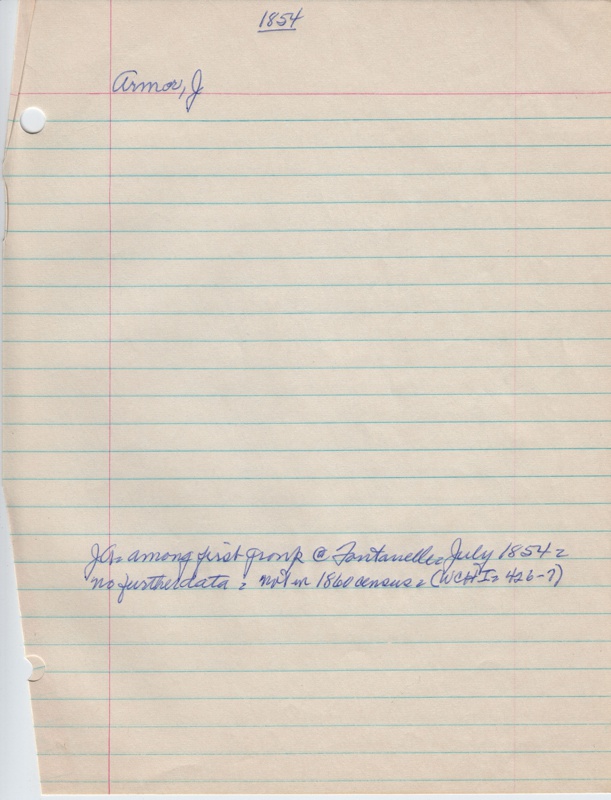 1854
Armor, J
JA = among first group @ Fontanelle = July 1854 =
no further data = not in 1860 census = (WCH I = 426-7)